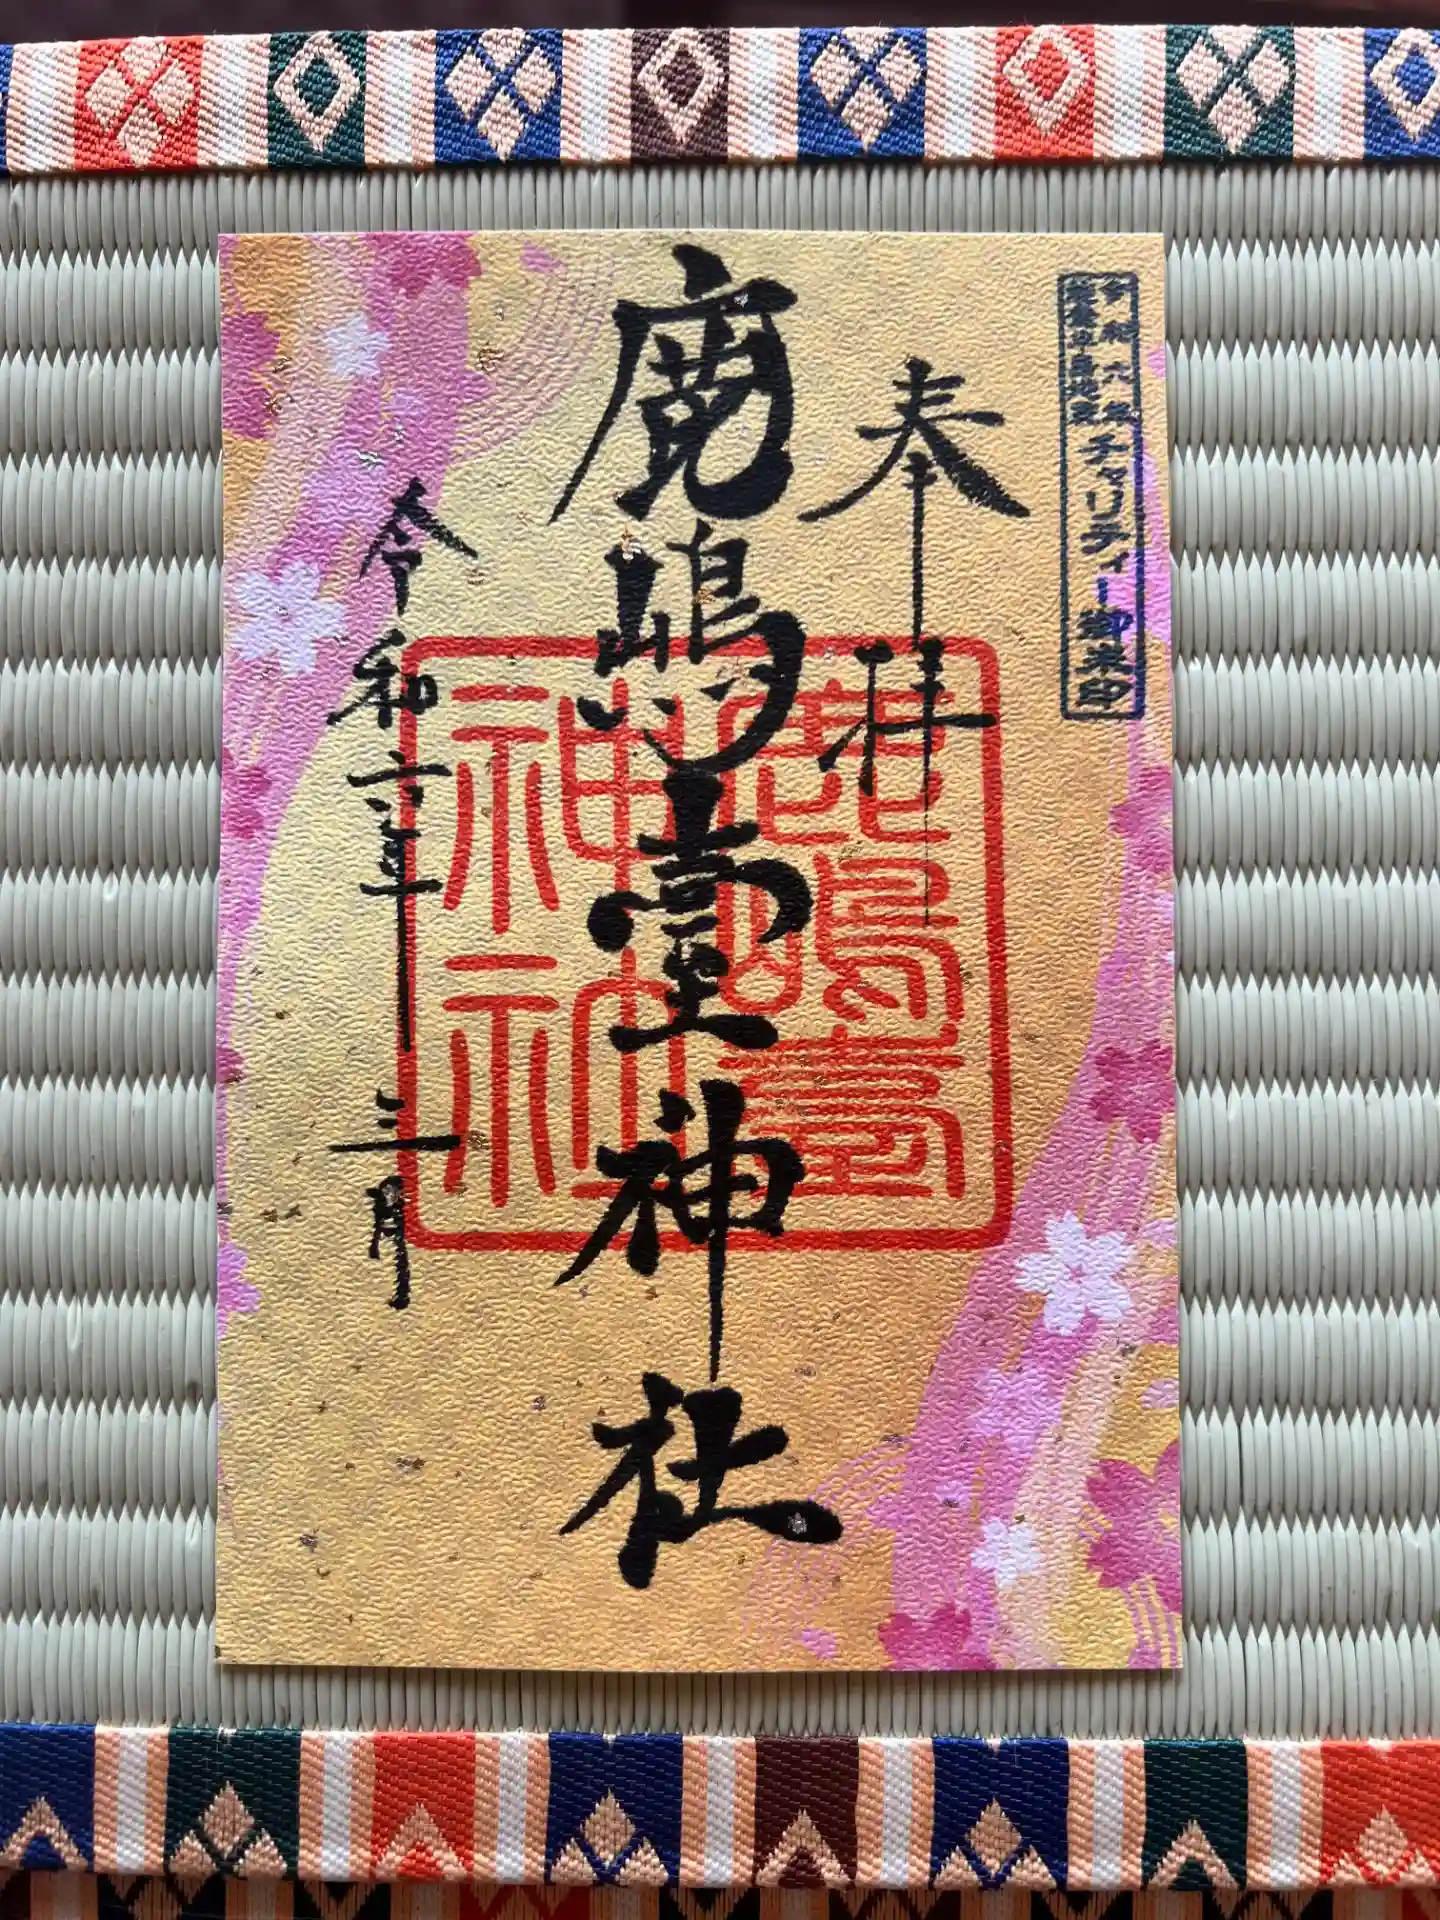 令和六年
能登半島地震
チャリティー御朱印
奉拝
鹿嶋臺神社
令和六年 三月
鹿嶋臺
神社